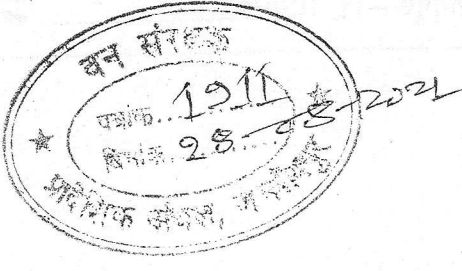 वन संरक्षक
पत्रांक..1911
दिनांक..28-08-2021
प्रादेशिक अंचल,